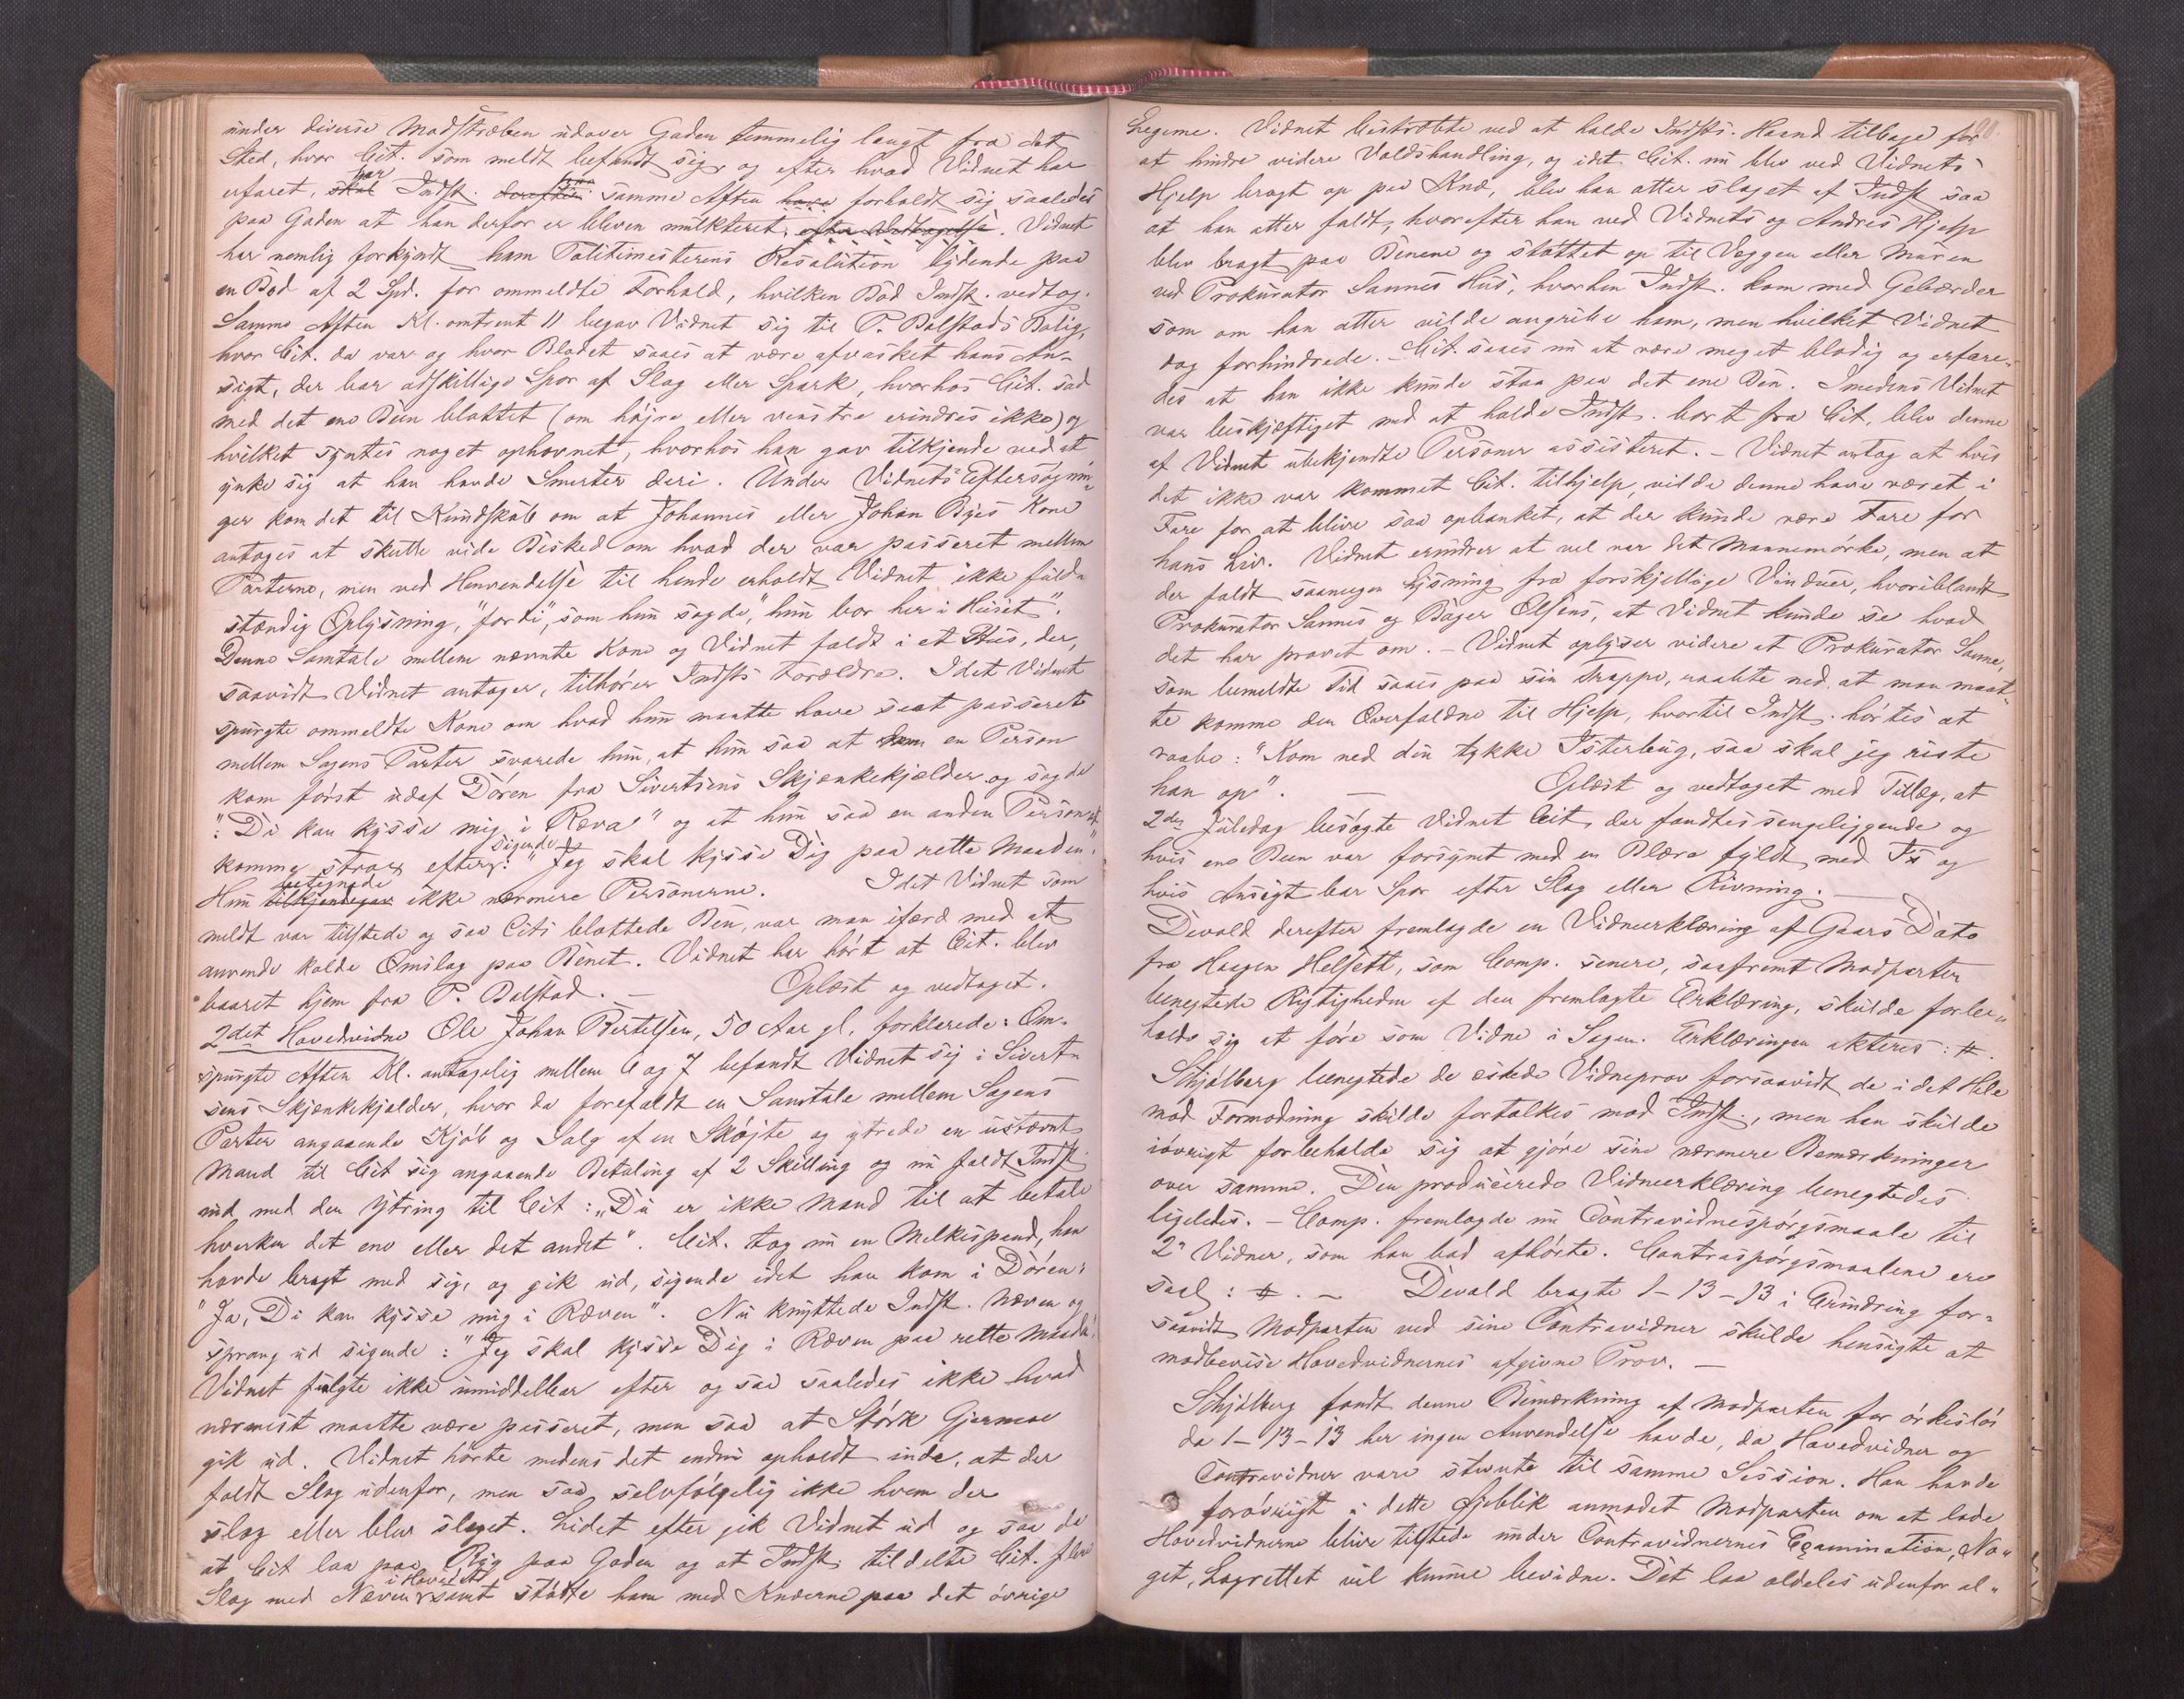 under diverse Modstræben udover Gaden temmelig langt fra det
Sted, hvor Cit. som meldt befandt sig, og efter hvad Vidnet har
erfaret, skal har Indst. derefter samme Aften have forholdt sig saaledes
paa Gaden at han derfor er bleven mulkteret, efter Vedtagelse. Vidnet
har nemlig forkyndt ham Politimesterens Resolution lydende paa
en Bod af 2 Spd. for ommeldte Forhold, hvilken Bod Indst. vedtog.
Samme Aften Kl. omtrent 11 begav Vidnet sig til P. Bolstads Bolig,
hvor Cit. da var og hvor Blodet saaes at være afvasket hans An-
sigt, der bar adskillige Spor af Slag eller Spark, hvorhos Cit. sad
med det ene Been blottet (om højre eller venstre erindres ikke) og
hvilket syntes noget ophovnet, hvorhos han gav tilkjende ved at
ynke sig at han havde Smerter deri. Under Vidnets Eftersøgnin-
ger kom det til Kundskab om at Johannes eller Johan Byes Kone
antages at skulle vide Besked om hvad der var passeret mellem
Parterne, men ved Henvendelse til hende erholdt Vidnet ikke fuld-
stændig Oplysning, "fordi", som hun sagde, "hun bor her i Huset".
Denne Samtale mellem nævnte Kone og Vidnet faldt i et Hus, der,
saavidt Vidnet antager, tilhører Indsts Forældre. Idet Vidnet
spurgte ommeldte Kone om hvad hun maatte have seet passeret
mellem Sagens Parter svarede hun, at hun saa at en Person
kom først udaf Døren fra Sivertsens Skjænkekjælder og sagde
: "Du kan kysse mig i Ræva" og at hun saa en anden Person at
komme strax efter, sigende: "Jeg skal kysse Dig paa rette Maaden".
Hun tilkjendegav betegnede ikke nærmere Personerne. Idet Vidnet som
meldt var tilstede og saa Cits blottede Ben, var man ifærd med at
anvende kolde Omslag paa Benet. Vidnet har hørt at Cit. blev
baaret hjem fra P. Bolstad. — Oplæst og vedtaget.
2det Hovedvidne Ole Johan Bertelsen, 50 Aar gl. forklarede: Om-
spurgte Aften Kl. antagelig mellem 6 og 7 befandt Vidnet sig i Sivert-
sens Skjænkekjælder, hvor da forefaldt en Samtale mellem Sagens
Parter angaaende Kjøb og Salg af en Skøjte og ytrede en ustævnt
Mand til Cit sig angaaende Betaling af 2 Skilling og nu faldt Indst
ind med den Ytring til Cit: "Du er ikke Mand til at betale
hverken det ene eller det andet". Cit. tog nu en Melkespand, han
havde bragt med sig, og gik ud, sigende idet han kom i Døren:
"Ja, Du kan kysse mig i Ræven". Nu knyttede Indst. Næven og
sprang ud sigende: "Jeg skal kysse Dig i Ræven paa rette Maade".
Vidnet fulgte ikke umiddelbar efter og saa saaledes ikke hvad
nærmest maatte være passeret, men saa at Størk
gik ud. Vidnet hørte medens det endnu opholdt inde, at der
faldt Slag udenfor, men saa selvfølgelig ikke hvem der
slog eller blev slaget. Lidet efter gik Vidnet ud og saa da
at Cit laa paa Ryg paa Gaden og at Indst. tildelte Cit. flere
Slag med Næven i Hovedet samt stødte ham med Knæerne paa det øvrige
Legeme. Vidnet bestræbte ved at holde Indsts. Haand tilbage for
at hindre videre Voldshandling, og idet Cit. nu blev ved Vidnets
Hjelp bragt op paa Knæ, blev han atter slaget af Indst saa
at han atter faldt, hvorefter han ved Vidnets og Andres Hjelp
blev bragt paa Benene og støttet op til Væggen eller Muren
ved Prokurator Sannes Hus, hvorhen Indst. kom med Gebærder
som om han atter vilde angribe ham, men hvilket Vidnet
dog forhindrede. — Cit. saaes nu at være meget blodig og erfare-
des at han ikke kunde staa paa det ene Ben. Imedens Vidnet
var beskjæftiget med at holde Indst. bort fra Cit, blev denne
af Vidnet ubekjendte Personer assisteret. — Vidnet antog at hvis
det ikke var kommet Cit. tilhjelp, vilde denne have været i
Fare for at blive saa opbanket, at der kunde være Fare for
hans Liv. Vidnet erindrer at vel var det Maanemørke, men at
der faldt saamegen Lysning fra forskjellige Vinduer, hvoriblandt
Prokurator Sannes og Bager Olsens, at Vidnet kunde se hvad
det har provet om. — Vidnet oplyser videre at Prokurator Sanne,
som bemeldte Tid saaes paa sin Trappe, raabte ned at man maat-
te komme den Overfaldne til Hjelp, hvortil Indst. hørtes at
raabe: "Kom ned din tykke Isterbug, saa skal jeg riste
han op". — Oplæst og vedtaget med Tillæg, at
2den Juledag besøgte Vidnet Cit, der fandtes sengeliggende og
hvis ene Been var forsynet med en Blære fyldt med Is og
hvis Ansigt bar Spor efter Slag eller Rivning. —
Devold derefter fremlagde en Vidneerklæring af Gaars Dato
fra Haagen Helsett, som Comp. senere, saafremt Modparten
benegtede Rigtigheden af den fremlagte Erklæring, skulde forbe-
holde sig at føre som Vidne i Sagen. Erklæringen akteres: #.
Schjølberg benegtede de eskede Vidneprov forsaavidt de i det Hele
mod Formodning skulde fortolkes mod Indst., men han skulde
iøvrigt forbeholde sig at gjøre sine nærmere Bemærkninger
over samme. Den producerede Vidneerklæring benegtedes
ligeledes. — Comp. fremlagde nu Contravidnespørgsmaale til
2de Vidner, som han bad afhørte. Contraspørgsmaalene ere
saal: #. — Devold bragte 1–13–13 i Erindring for-
saavidt Modparten ved sine Contravidner skulde hensigte at
modbevise Hovedvidnernes afgivne Prov. —
Schjølberg fandt denne Bemærkning af Modparten for ørkesløs
da 1–13–13 her ingen Anvendelse havde, da Hovedvidner og
Contravidner vare stevnte til samme Session. Han havde
forøvrigt i dette Øjeblik anmodet Modparten om at lade
Hovedvidnerne blive tilstede under Contravidnernes Examination, No-
get, Lagrettet vil kunne bevidne. Det laa aldeles udenfor al-